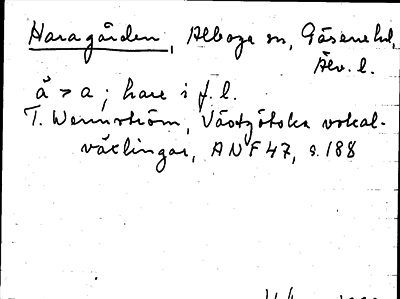 Haragården, Alboga sn, Gäsene hd,
Älv. l.
å > a ; hare i f. l.
T. Wennström, Västgötska vokal-
växlingar, ANF 47, s. 188